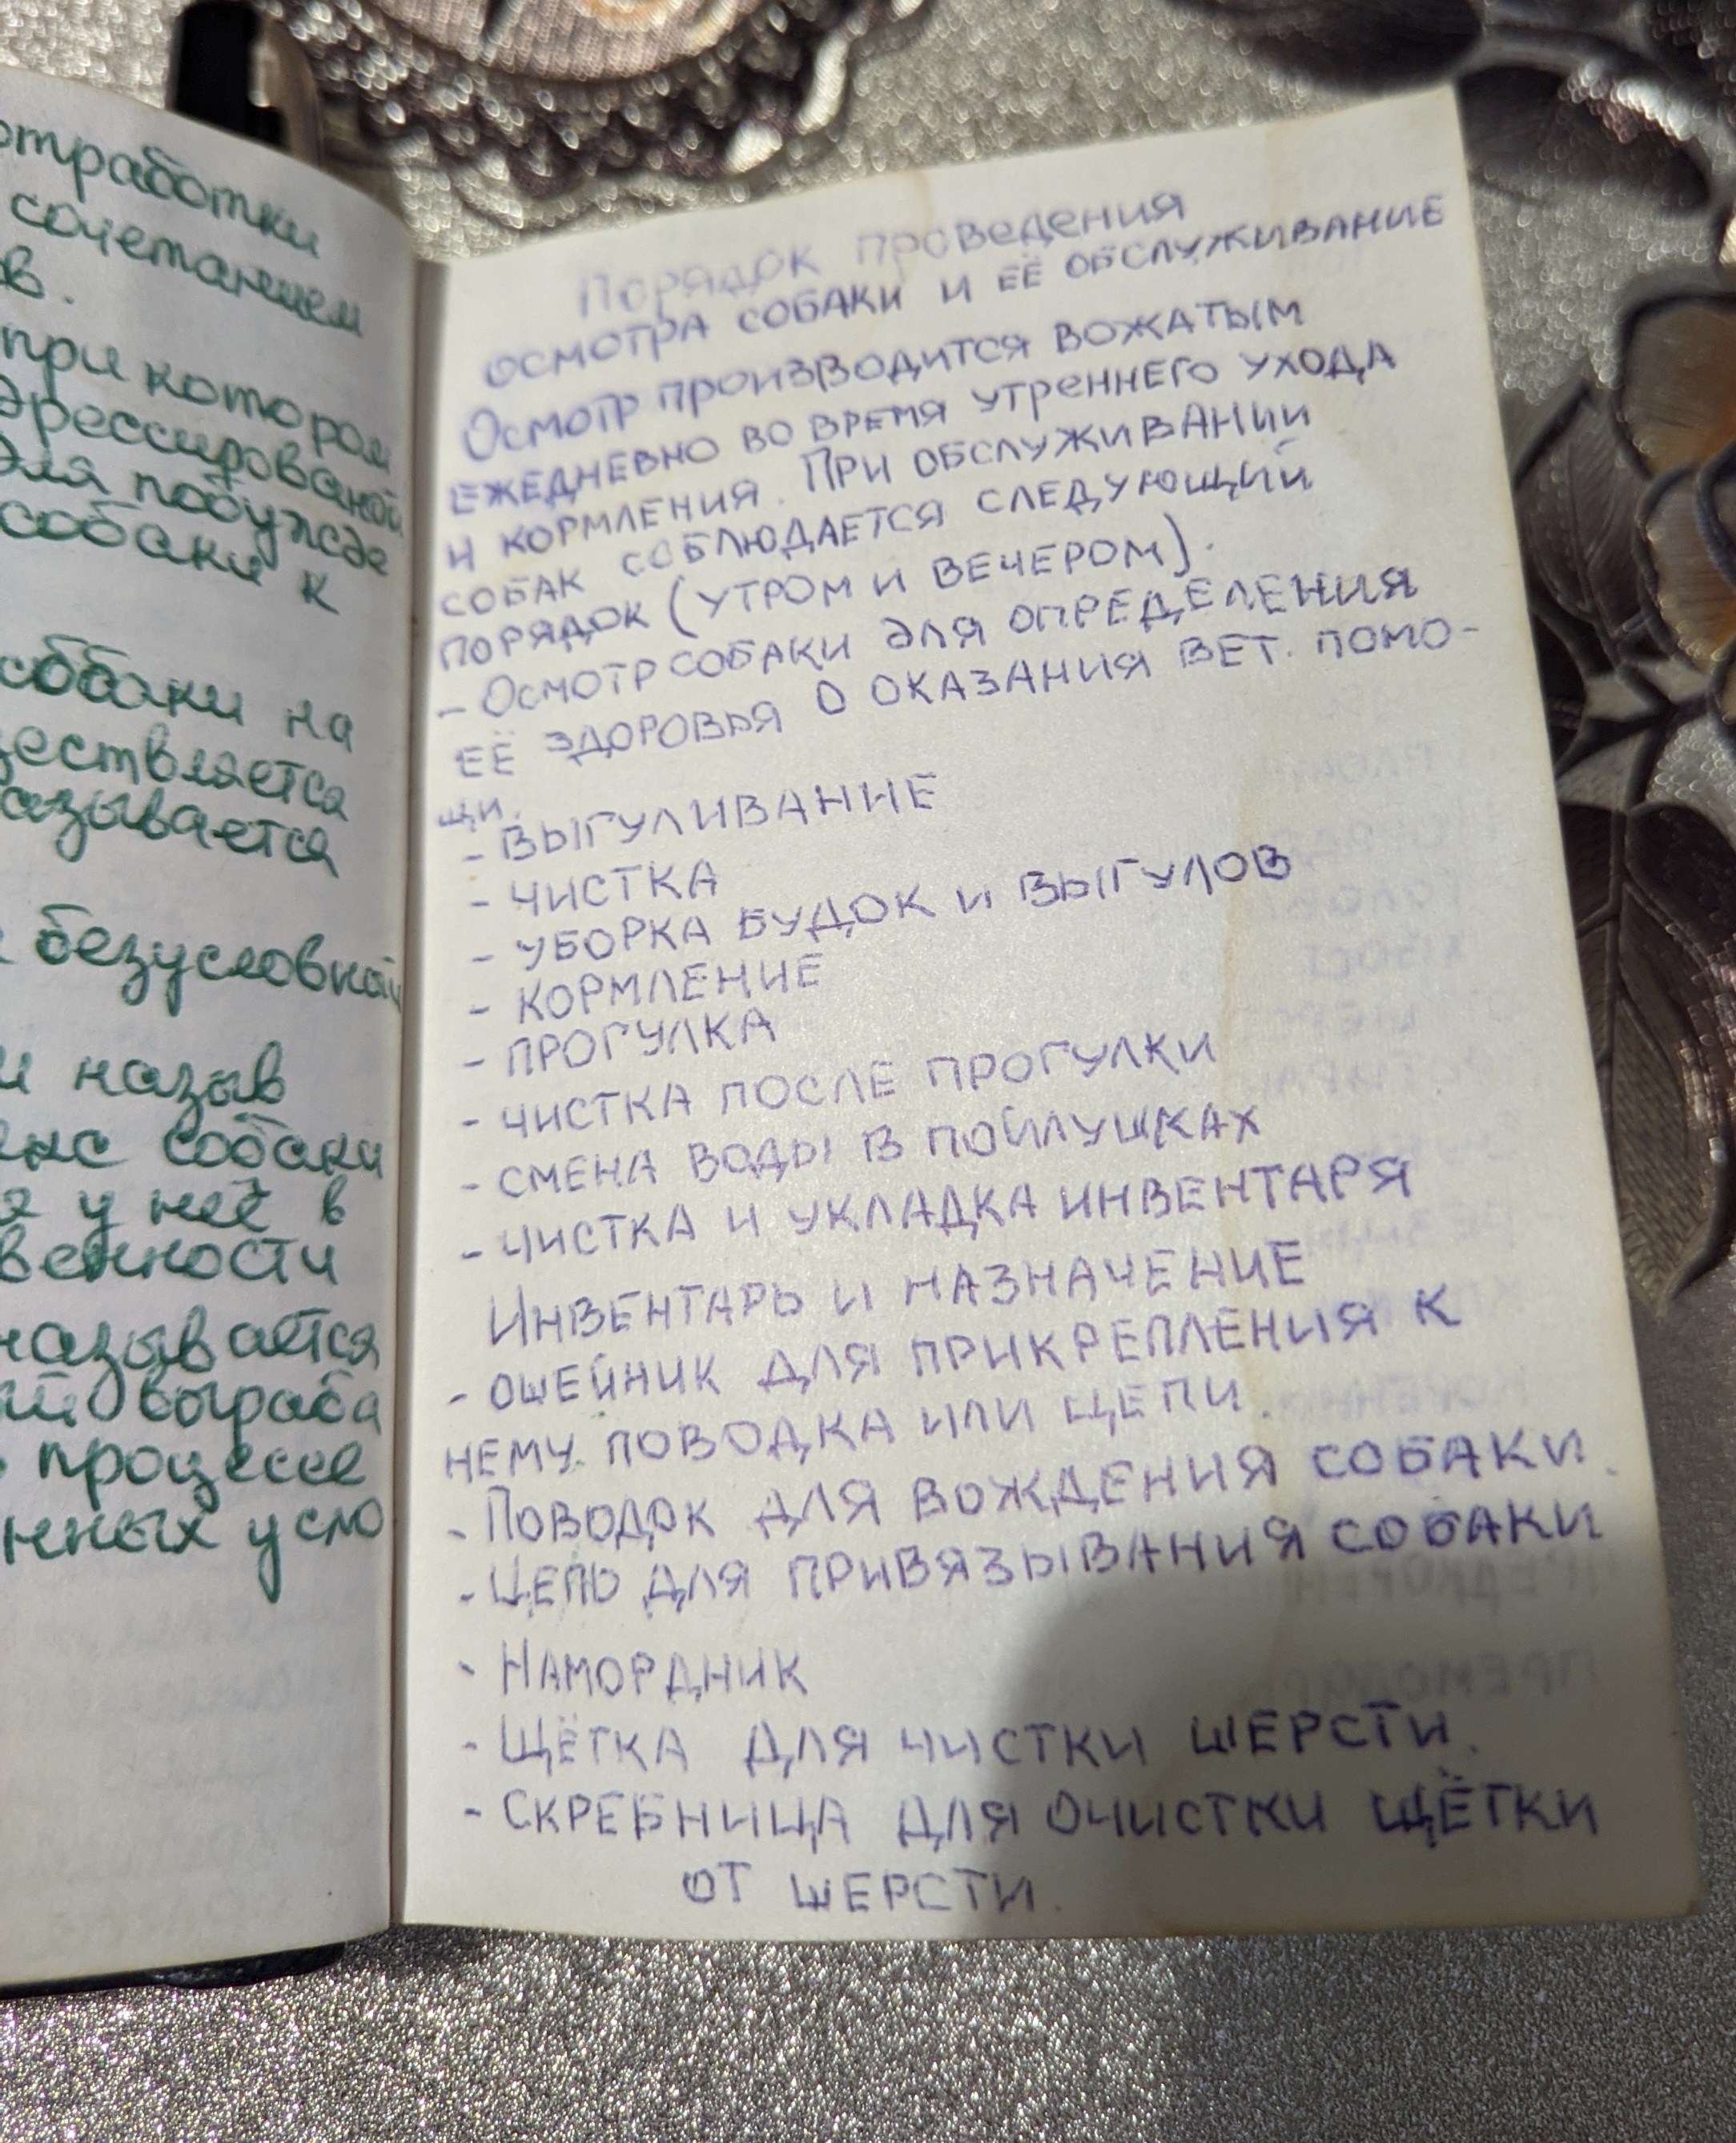 отработки
сочетанием
ов.
при котором
дрессированой
для побужде
собаки к
собаки на
ществляется
азывается
безусловной
и назыв
собаки
я у неё в
венности
называется
выраба
процессе
нных усло
Порядок проведения
осмотра собаки и её обслуживание
Осмотр производится вожатым
ежедневно во время утреннего ухода
и кормления. При обслуживании
собак соблюдается следующий
порядок (утром и вечером).
- Осмотр собаки для определения
её здоровья о оказания вет. помо-
щи.
- выгуливание
- чистка
- уборка будок и выгулов
- кормление
- прогулка
- чистка после прогулки
- смена воды в пойлушках
- чистка и укладка инвентаря
Инвентарь и назначение
- ошейник для прикрепления к
нему поводка или цепи.
- Поводок для вождения собаки.
- Цепь для привязывания собаки
- Намордник
- Щётка для чистки шерсти.
- Скребница для очистки щётки
от шерсти.